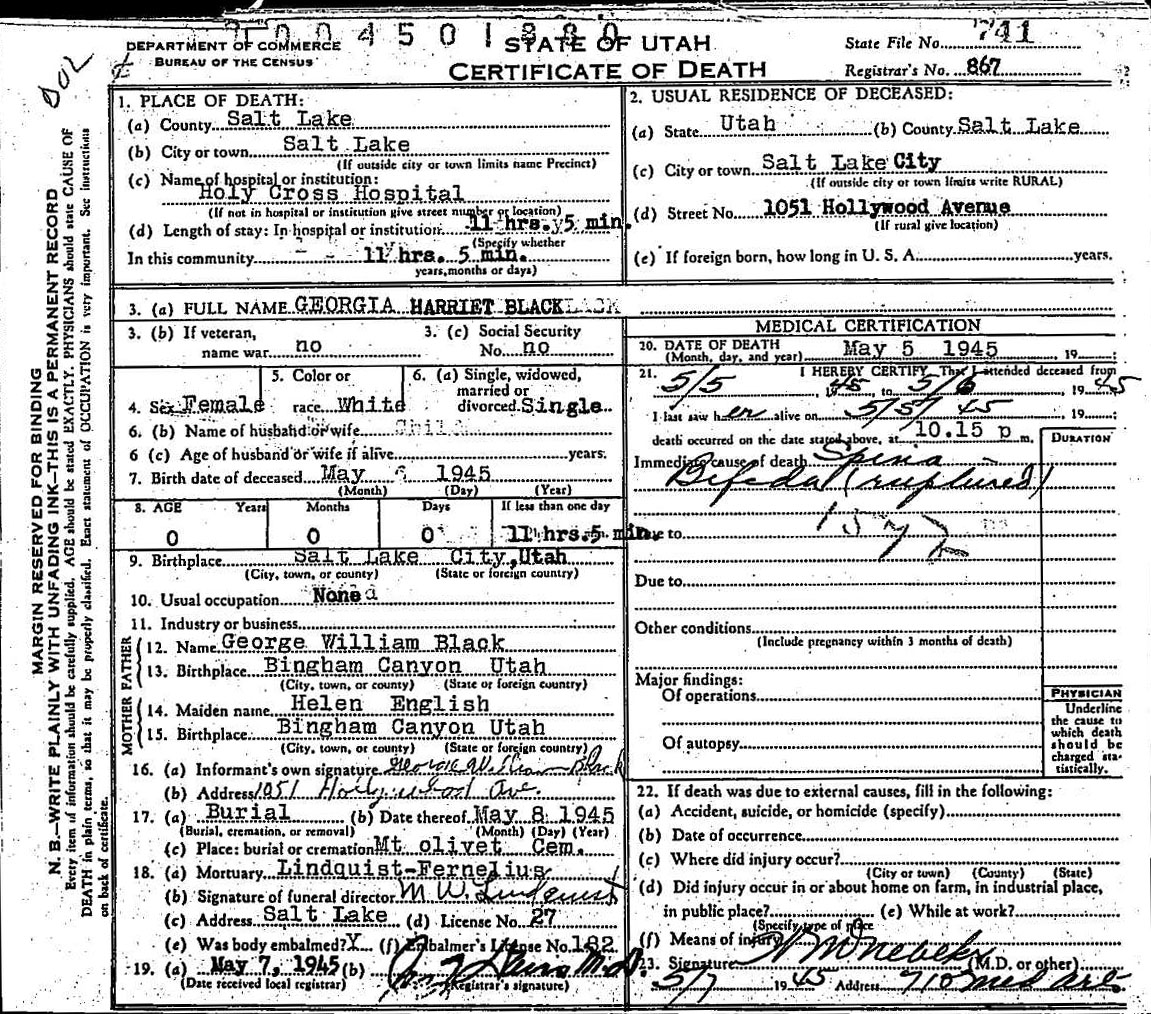 2004501380
DEPARTMENT OF COMMERCE
BUREAU OF THE CENSUS
STATE OF UTAH
CERTIFICATE OF DEATH
State File No. 741
Registrar's No. 867
MARGIN RESERVED FOR BINDING
N. B.—WRITE PLAINLY WITH UNFADING INK—THIS IS A PERMANENT RECORD
Every item of information should be carefully supplied. AGE should be stated EXACTLY. PHYSICIANS should state CAUSE OF
DEATH in plain terms, so that it may be properly classified. Exact statement of OCCUPATION is very important. See instructions
on back of certificate.
1. PLACE OF DEATH:
(a) County Salt Lake
(b) City or town Salt Lake
(If outside city or town limits name Precinct)
(c) Name of hospital or institution:
Holy Cross Hospital
(If not in hospital or institution give street number or location)
(d) Length of stay: In hospital or institution 11 hrs. 5 min.
(Specify whether
In this community 11 hrs. 5 min.
years, months or days)
2. USUAL RESIDENCE OF DECEASED:
(a) State Utah (b) County Salt Lake
(c) City or town Salt Lake City
(If outside city or town limits write RURAL)
(d) Street No. 1051 Hollywood Avenue
(If rural give location)
(e) If foreign born, how long in U. S. A. years.
3. (a) FULL NAME GEORGIA HARRIET BLACK
3. (b) If veteran,
name war no
3. (c) Social Security
No. no
4. Sex Female
5. Color or
race White
6. (a) Single, widowed,
married or
divorced Single
6. (b) Name of husband or wife Child
6 (c) Age of husband or wife if alive years.
7. Birth date of deceased May 1945
(Month) (Day) (Year)
8. AGE Years Months Days If less than one day
0 0 0 11 hrs. 5 min.
9. Birthplace Salt Lake City, Utah
(City, town, or county) (State or foreign country)
10. Usual occupation None
11. Industry or business
FATHER
12. Name George William Black
13. Birthplace Bingham Canyon Utah
(City, town, or county) (State or foreign country)
MOTHER
14. Maiden name Helen English
15. Birthplace Bingham Canyon Utah
(City, town, or county) (State or foreign country)
16. (a) Informant's own signature George William Black
(b) Address 1051 Hollywood Ave.
17. (a) Burial (b) Date thereof May 8 1945
(Burial, cremation, or removal) (Month) (Day) (Year)
(c) Place: burial or cremation Mt olivet Cem.
18. (a) Mortuary Lindquist-Fernelius
(b) Signature of funeral director M. W. Lindquist
(c) Address Salt Lake (d) License No. 27
(e) Was body embalmed? X (f) Embalmer's License No. 182
19. (a) May 7, 1945 (b) M.D.
(Date received local registrar) (Registrar's signature)
MEDICAL CERTIFICATION
20. DATE OF DEATH
(Month, day, and year) May 5 1945, 19
21. I HEREBY CERTIFY, That I attended deceased from
5/5 1945, to 5/6 1945
I last saw her alive on 5/5/45 19
death occurred on the date stated above, at 10.15 p m.
DURATION
Immediate cause of death Spina
Bifida (ruptured)
Due to
Due to
Other conditions
(Include pregnancy within 3 months of death)
Major findings:
Of operations
Of autopsy
PHYSICIAN
Underline
the cause to
which death
should be
charged sta-
tistically.
22. If death was due to external causes, fill in the following:
(a) Accident, suicide, or homicide (specify)
(b) Date of occurrence
(c) Where did injury occur?
(City or town) (County) (State)
(d) Did injury occur in or about home on farm, in industrial place,
in public place? (e) While at work?
(Specify type of place
(f) Means of injury
23. Signature (M.D. or other)
5/7 1945 Address 710 Med Arts